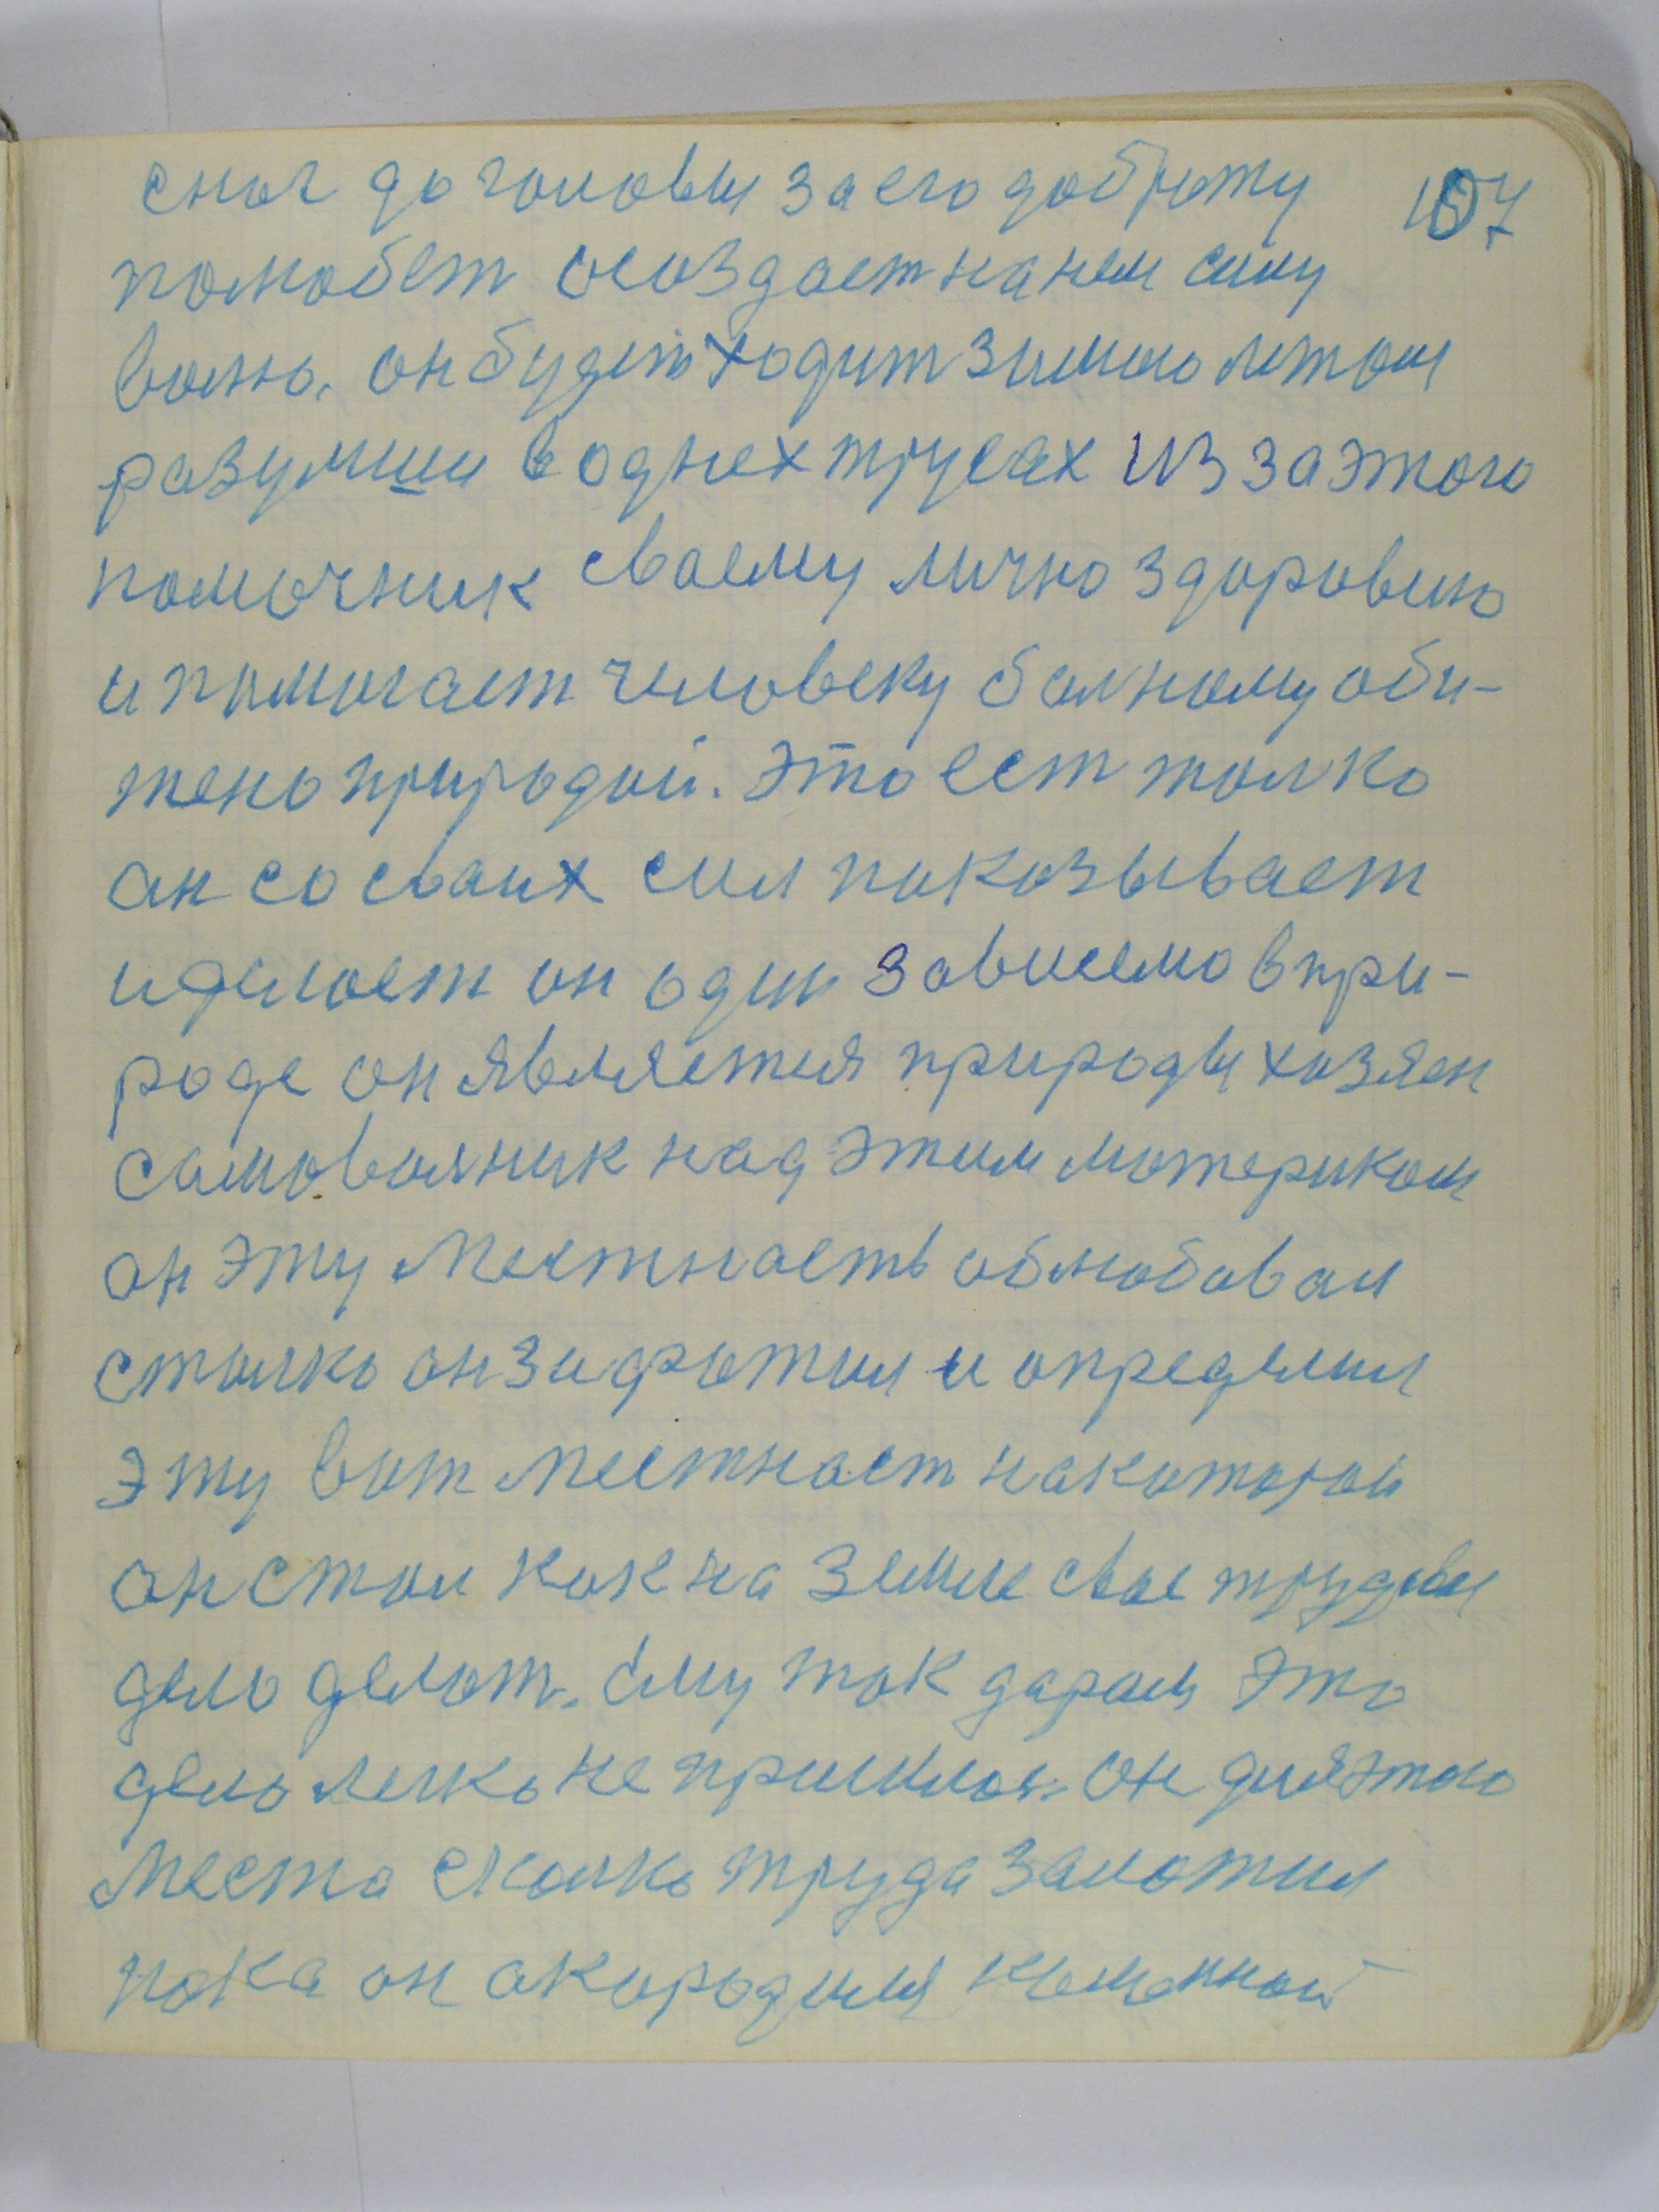 сног до головы за его доброту 107
полюбет осоздает на нем силу
волю. он будет ходит зимою летом
разумши в однех трусах из за этого
помочник сваему лично здоровию
и помогает человеку балному оби-
жено природой. Это ест толко
ан со сваих сил показывает
и делоет он один зависемо в при-
роде он является природы хозяен
самовольник над этим материком
он эту Местность облюбовал
столко он зафотил и определил
эту вот Местност накоторой
он стол как на Земле свое трудовы
дело делот. Ему так даром это
дело легко не пришлос. он для этого
Места сколко труда заложил
пока он